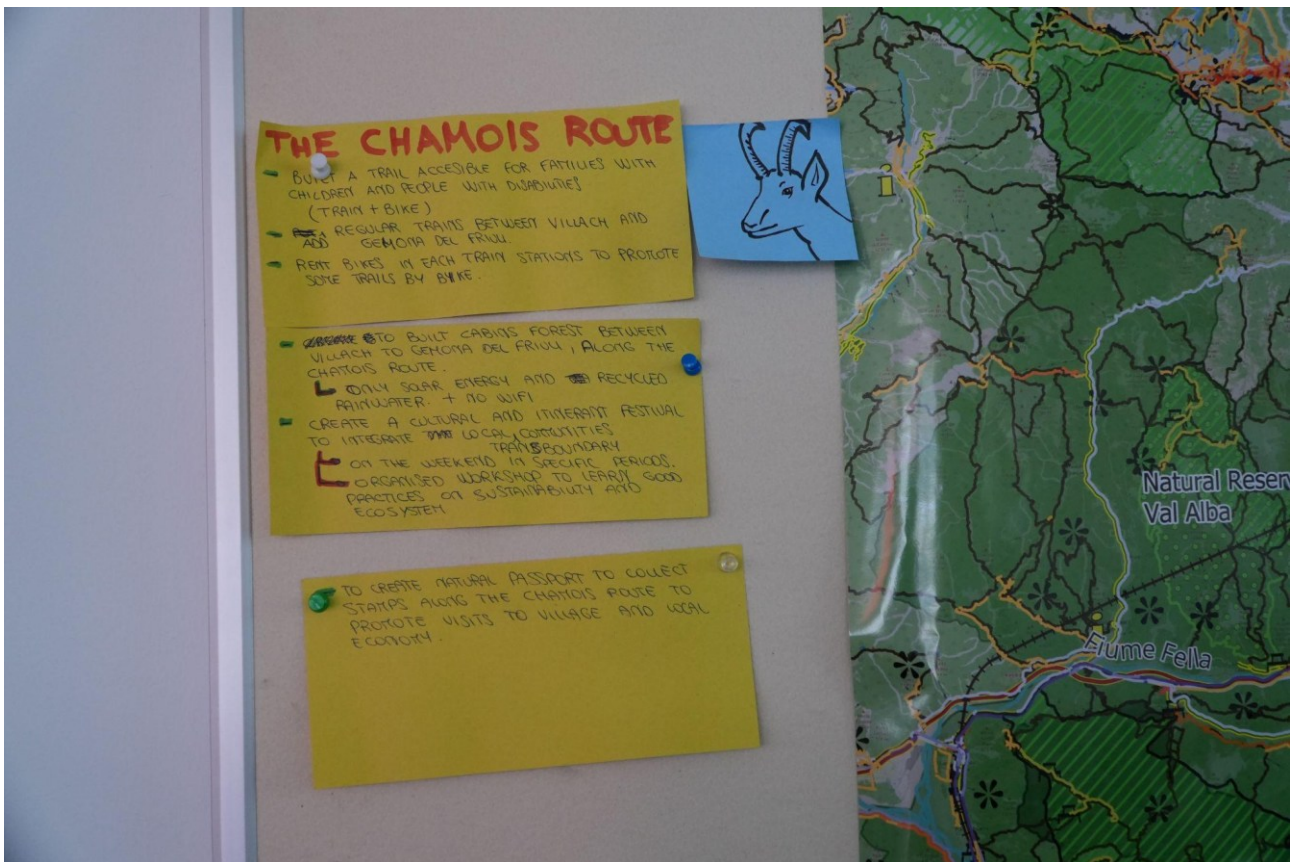 THE CHAMOIS ROUTE
- BUILT A TRAIL ACCESIBLE FOR FAMILIES WITH
CHILDREN AND PEOPLE WITH DISABILITIES
(TRAIN + BIKE)
- ADD REGULAR TRAINS BETWEEN VILLACH AND
GEMONA DEL FRIULI.
- RENT BIKES IN EACH TRAIN STATIONS TO PROMOTE
SOME TRAILS BY BIKE.
- TO BUILT CABINS FOREST BETWEEN
VILLACH TO GEMONA DEL FRIULI, ALONG THE
CHAMOIS ROUTE.
ONLY SOLAR ENERGY AND RECYCLED
RAINWATER. + NO WIFI
- CREATE A CULTURAL AND ITINERANT FESTIVAL
TO INTEGRATE LOCAL COMMUNITIES
TRANSBOUNDARY
ON THE WEEKEND IN SPECIFIC PERIODS.
ORGANISED WORKSHOP TO LEARN GOOD
PRACTICES ON SUSTAINABILITY AND
ECOSYSTEM
TO CREATE NATURAL PASSPORT TO COLLECT
STAMPS ALONG THE CHAMOIS ROUTE TO
PROMOTE VISITS TO VILLAGE AND LOCAL
ECONOMY.
i
Natural Reserv
Val Alba
i
Fiume Fella